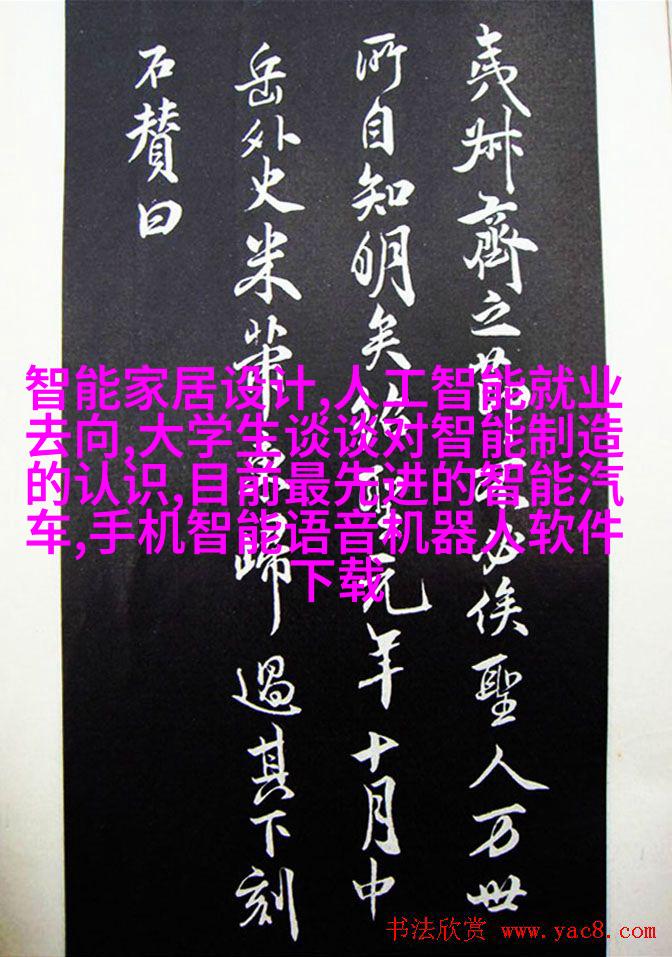 夷叔齊之節必俟聖人万世
所自知明矣紹聖元年十月中
岳外史米芾歸過其下刻
石賛曰
智能家居设计,人工智能就业
去向,大学生谈谈对智能制造
的认识,目前最先进的智能汽
车,手机智能语音机器人软件
下载
书法欣赏 www.yac8.com